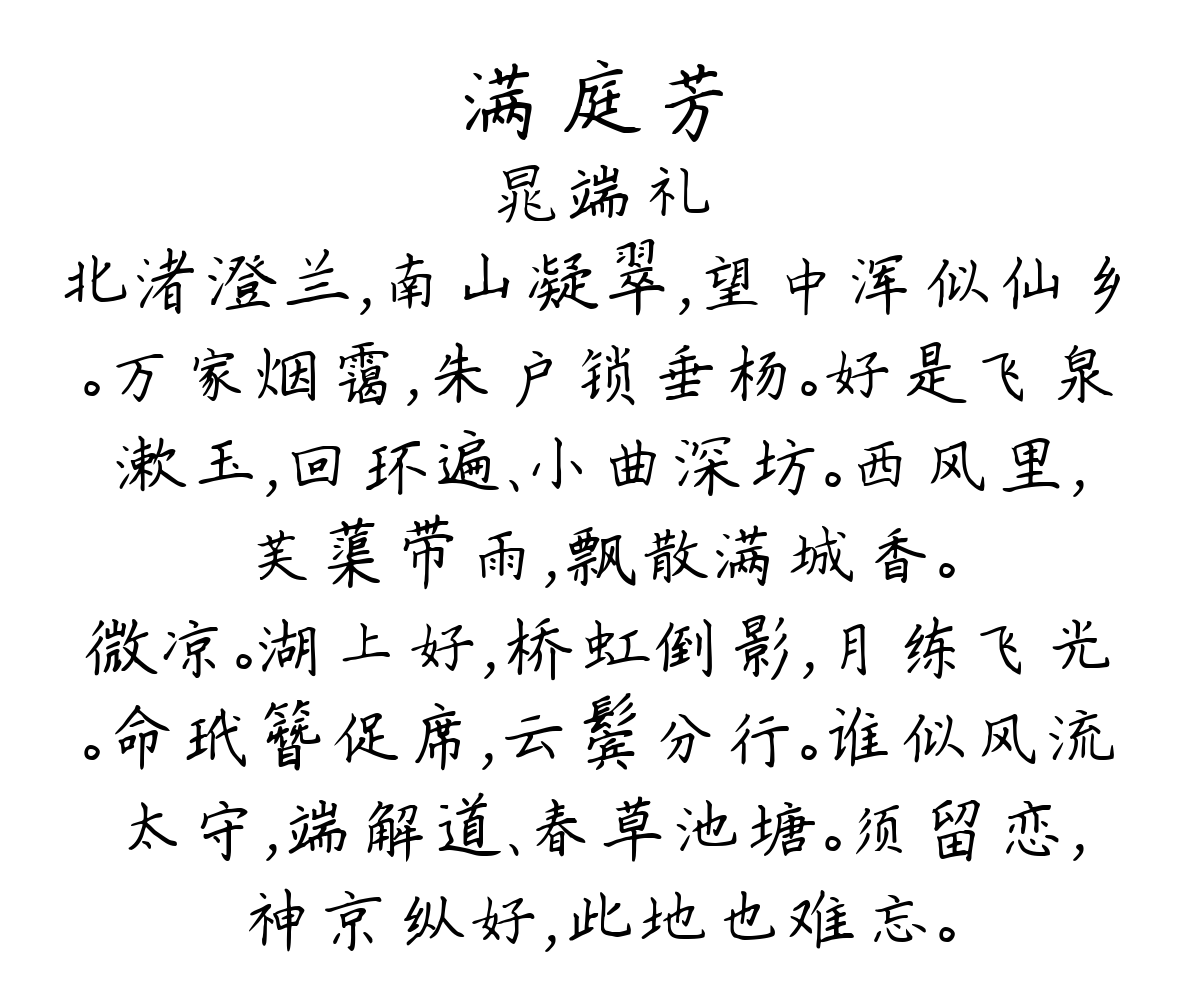 满庭芳
晁端礼
北渚澄兰,南山凝翠,望中浑似仙乡
。万家烟霭,朱户锁垂杨。好是飞泉
漱玉,回环遍、小曲深坊。西风里,
芙蕖带雨,飘散满城香。
微凉。湖上好,桥虹倒影,月练飞光
。命玳簪促席,云鬓分行。谁似风流
太守,端解道、春草池塘。须留恋,
神京纵好,此地也难忘。